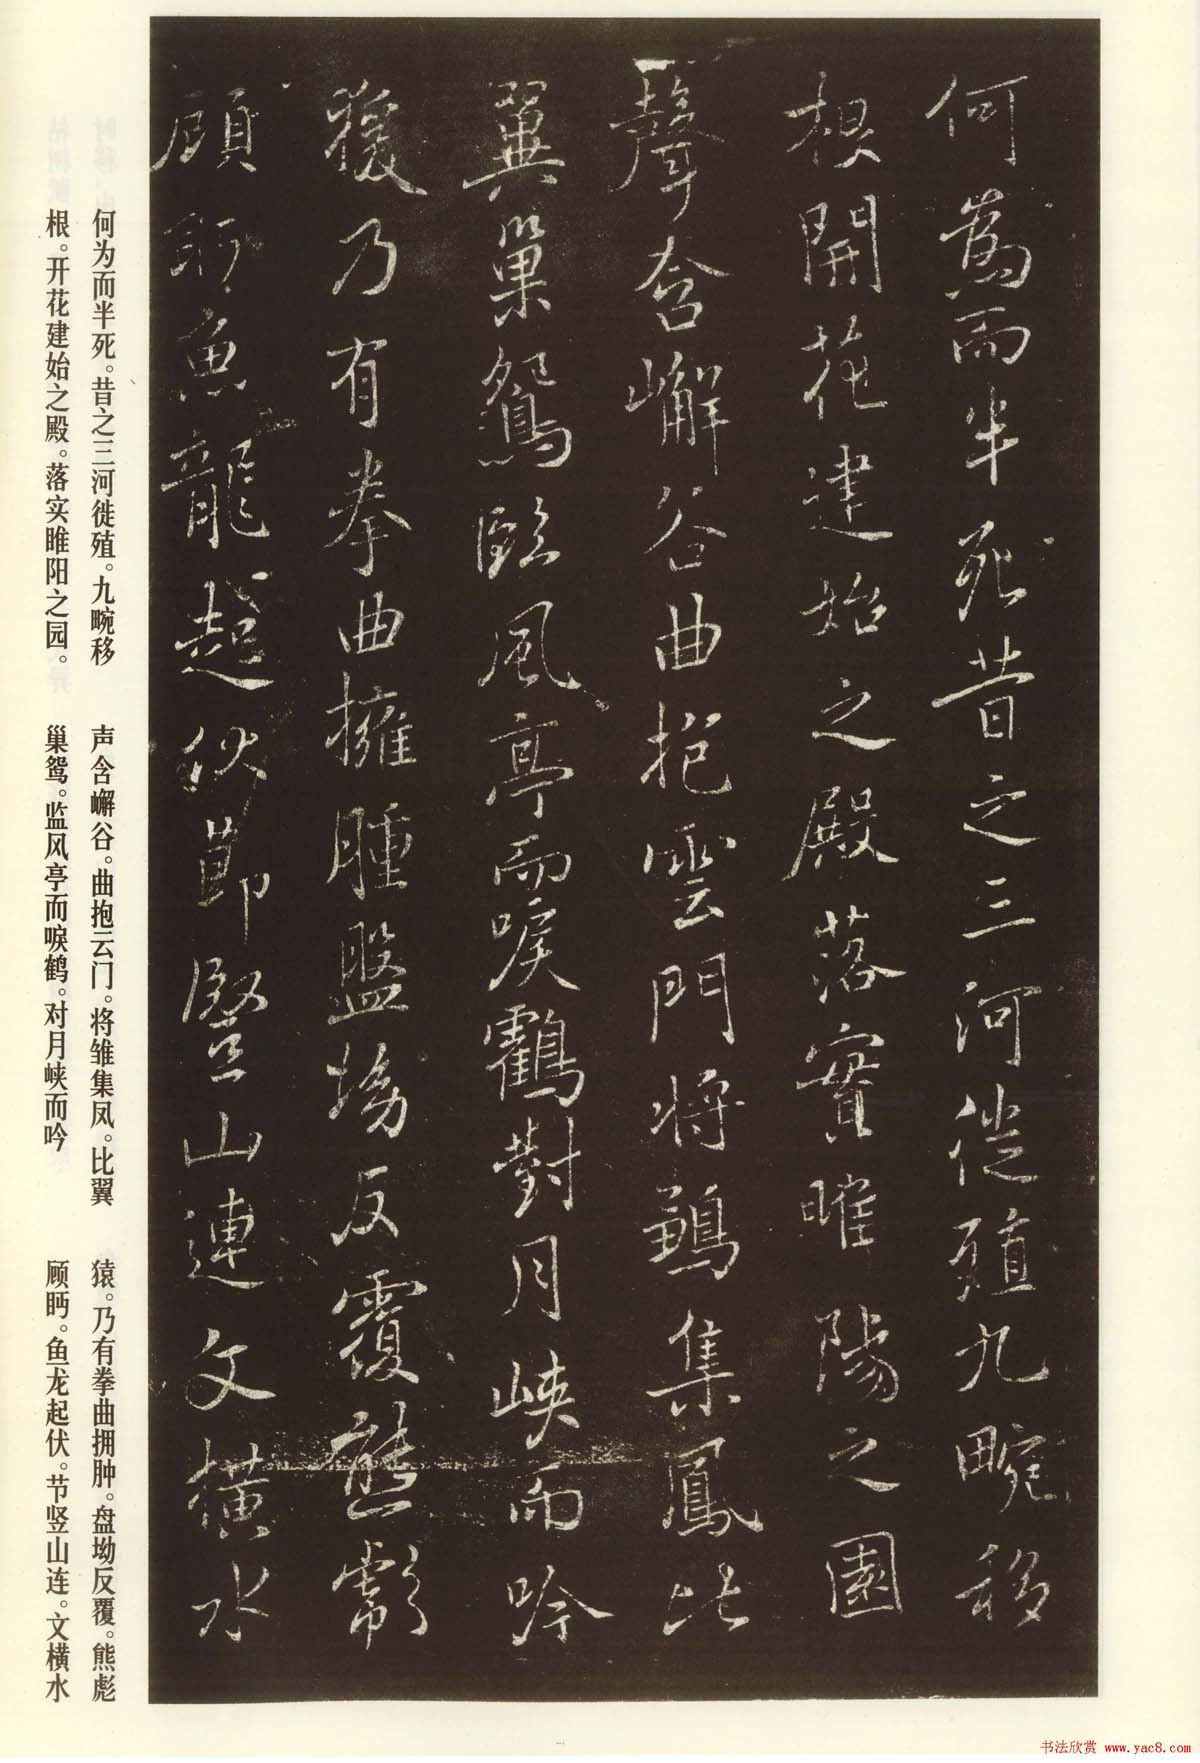 何為而半死昔之三河徙殖九畹移
根開花建始之殿落實睢陽之園
聲含嶰谷曲抱雲門將鶵集鳳比
翼巢鴛臨風亭而唳鶴對月峽而吟
猨乃有拳曲擁腫盤坳反覆熊彪
顧眄魚龍起伏節豎山連文橫水
何为而半死。昔之三河徙殖。九畹移
根。开花建始之殿。落实睢阳之园。
声含嶰谷。曲抱云门。将雏集凤。比翼
巢鸳。监风亭而唳鹤。对月峡而吟
猿。乃有拳曲拥肿。盘坳反覆。熊彪
顾眄。鱼龙起伏。节竖山连。文横水
书法欣赏 www.yac8.com